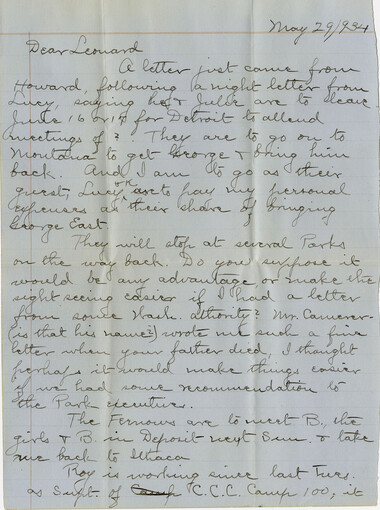 May 29/934
Dear Leonard
A letter just came from
Howard, following a night letter from
Lucy, saying he & Julie are to leave
June 16 or 17 for Detroit to attend
meetings of ? . They are to go on to
Montana to get George & bring him
back. And I am to go as their
guest, Lucy are to pay my personal
expenses as their share of bringing
George East.
They will stop at several Parks
on the way back. Do you suppose it
would be any advantage or make the
sight seeing easier if I had a letter
from some Wash. athority? Mr. Camerer-
(is that his name?) wrote me such a fine
letter when your father died, I thought
perhaps it would make things easier
if we had some recommendation to
the Park executives.
The Fernows are to meet B., the
girls & B. in Deposit next Sun. & take
me back to Ithaca
Roy is working since last Tues.
as Supt. of Camp C.C.C. Camp 100; it